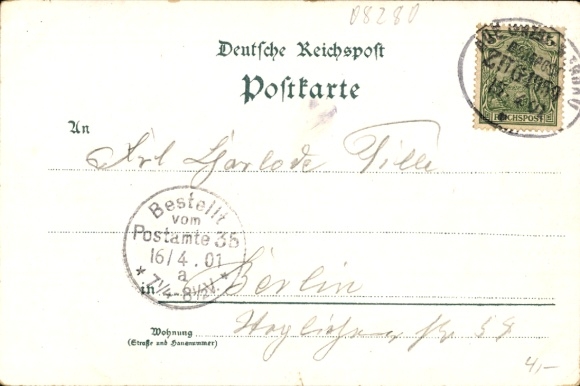 08280
Deutsche Reichspost
Postkarte
REICHSPOST
An
Frl. Charlotte Tille
Bestellt
vom
Postamte 35
16/4.01
a
* 7¼-8½V. *
in Berlin
Wohnung
(Straße und Hausnummer)
Str. 59
4,-